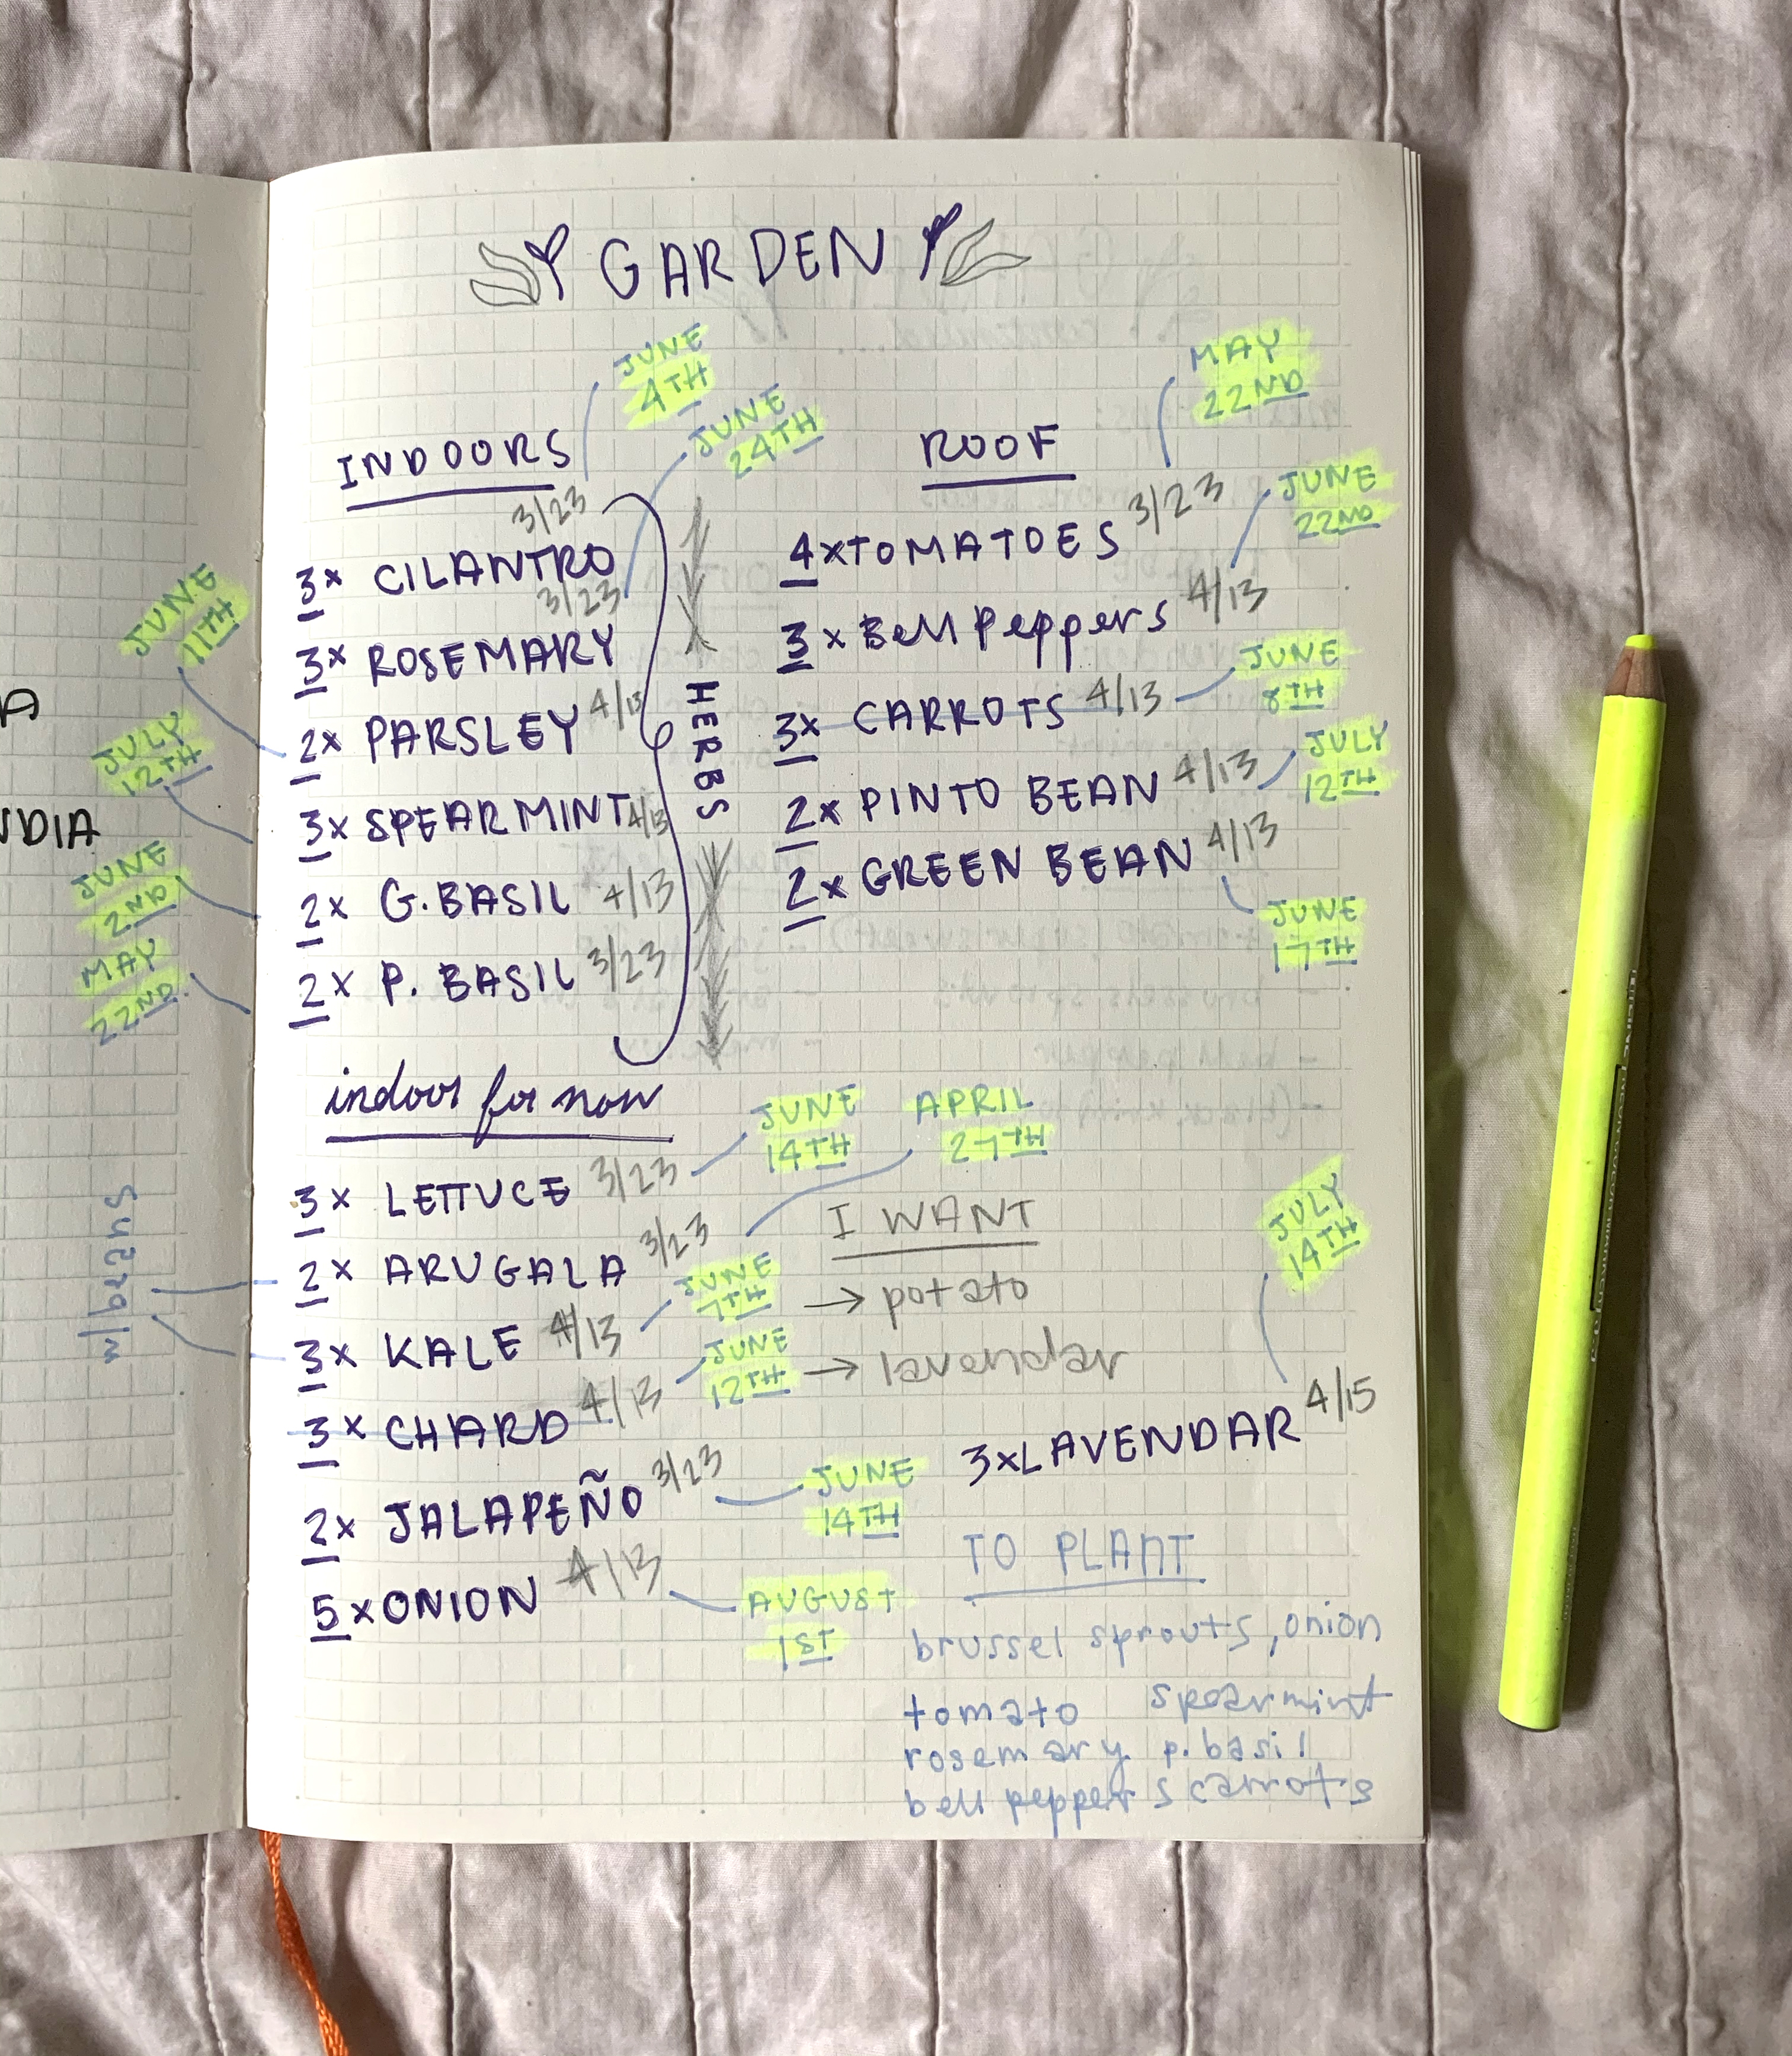 GARDEN
INDOORS
JUNE
4TH
3/23
3x CILANTRO
JUNE
24TH
3/23
3x ROSEMARY
JUNE
11TH
2x PARSLEY 4/13
JULY
12TH
3x SPEARMINT 4/13
JUNE
2ND
2x G. BASIL 4/13
MAY
22ND
2x P. BASIL 3/23
HERBS
ROOF
MAY
22ND
4xTOMATOES 3/23
JUNE
22ND
3x Bell Peppers 4/13
3x CARROTS 4/13
JUNE
8TH
2x PINTO BEAN 4/13
JULY
12TH
2x GREEN BEAN 4/13
JUNE
17TH
indoor for now
3x LETTUCE 3/23
JUNE
14TH
2x ARUGALA 3/23
APRIL
27TH
3x KALE 4/13
JUNE
7TH
w/ beans
3x CHARD 4/13
JUNE
12TH
2x JALAPEÑO 3/23
JUNE
14TH
5xONION 4/13
AUGUST
1ST
I WANT
→ potato
→ lavendar
JULY
14TH
3xLAVENDAR 4/15
TO PLANT
brussel sprouts, onion
tomato spearmint
rosemary p. basil
bell peppers carrots
A
NDIA